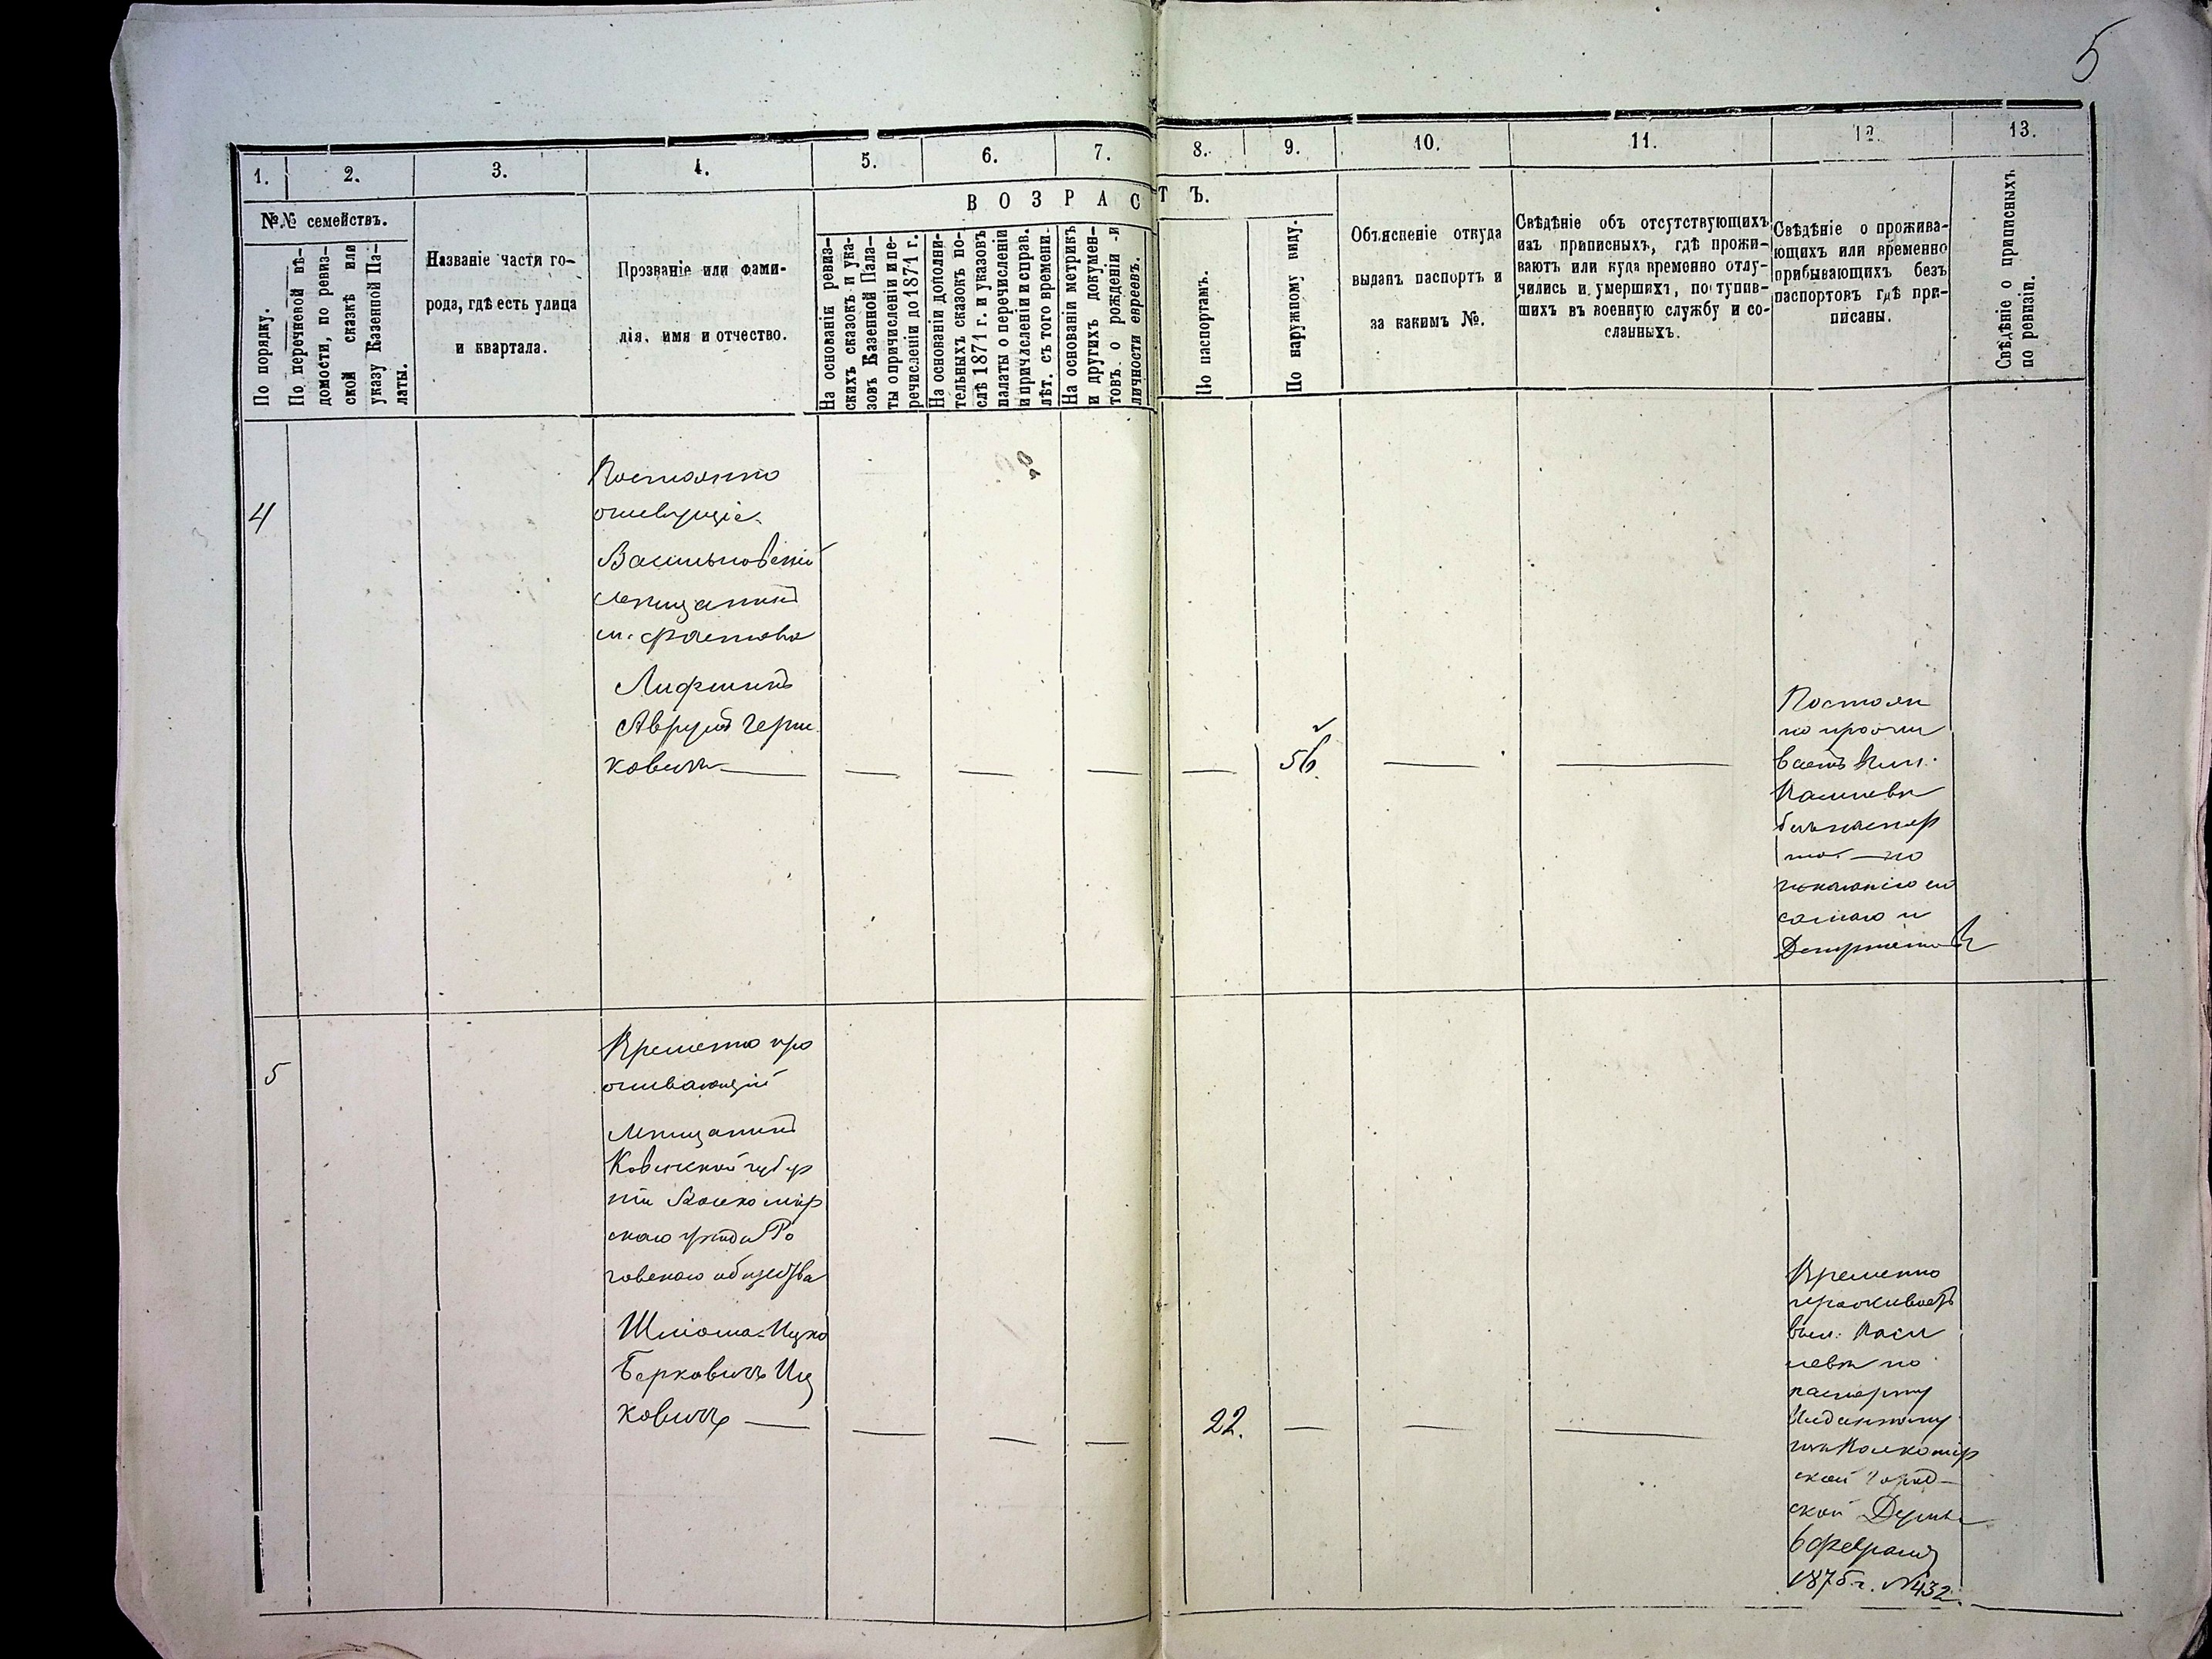 5
1.
2.
3.
4.
5.
6.
7.
8.
9.
10.
11.
12.
13.
№№ семействъ.
По порядку.
По перечневой вѣ-
домости, по ревиз-
ской сказкѣ или
указу Казенной Па-
латы.
Названіе части го-
рода, гдѣ есть улица
и квартала.
Прозваніе или фами-
лія, имя и отчество.
ВОЗРАСТЪ.
На основаніи ревиз-
скихъ сказокъ и ука-
зовъ Казенной Пала-
ты о причисленіи и пе-
речисленіи до 1871 г.
На основаніи дополни-
тельныхъ сказокъ по-
слѣ 1871 г. и указовъ
палаты о перечисленіи
и причисленіи и справ.
лѣт. съ того времени.
На основаніи метрикъ
и другихъ докумен-
товъ о рожденіи и
личности евреевъ.
По паспортамъ.
По наружному виду.
Объясненіе откуда
выданъ паспортъ и
за какимъ №.
Свѣдѣніе объ отсутствующихъ
изъ приписныхъ, гдѣ прожи-
ваютъ или куда временно отлу-
чились и умершихъ, поступив-
шихъ въ военную службу и со-
сланныхъ.
Свѣдѣніе о прожива-
ющихъ или временно
прибывающихъ безъ
паспортовъ гдѣ при-
писаны.
Свѣдѣніе о приписныхъ
по ревизіи.
4
Постоянно
живущіе
Васильковскій
мѣщанинъ
м. Фастова
Лифшицъ
Аврумъ Герш
ковичъ
56.
Постоян
но прожи
ваетъ
безъ паспор
та по
5
Временно про
живающій
Мѣщанинъ
Ковенской губер
ніи Вилкомир
скаго уѣзда Ро
говскаго общества
Шліома-Ицко
Берковичъ Иц
ковичъ
22.
Временно
проживаетъ
въ м.
по
паспорту
Выданному
изъ Вилкомир
ской Город
ской Думы
6 февраля
1875 г. № 432.